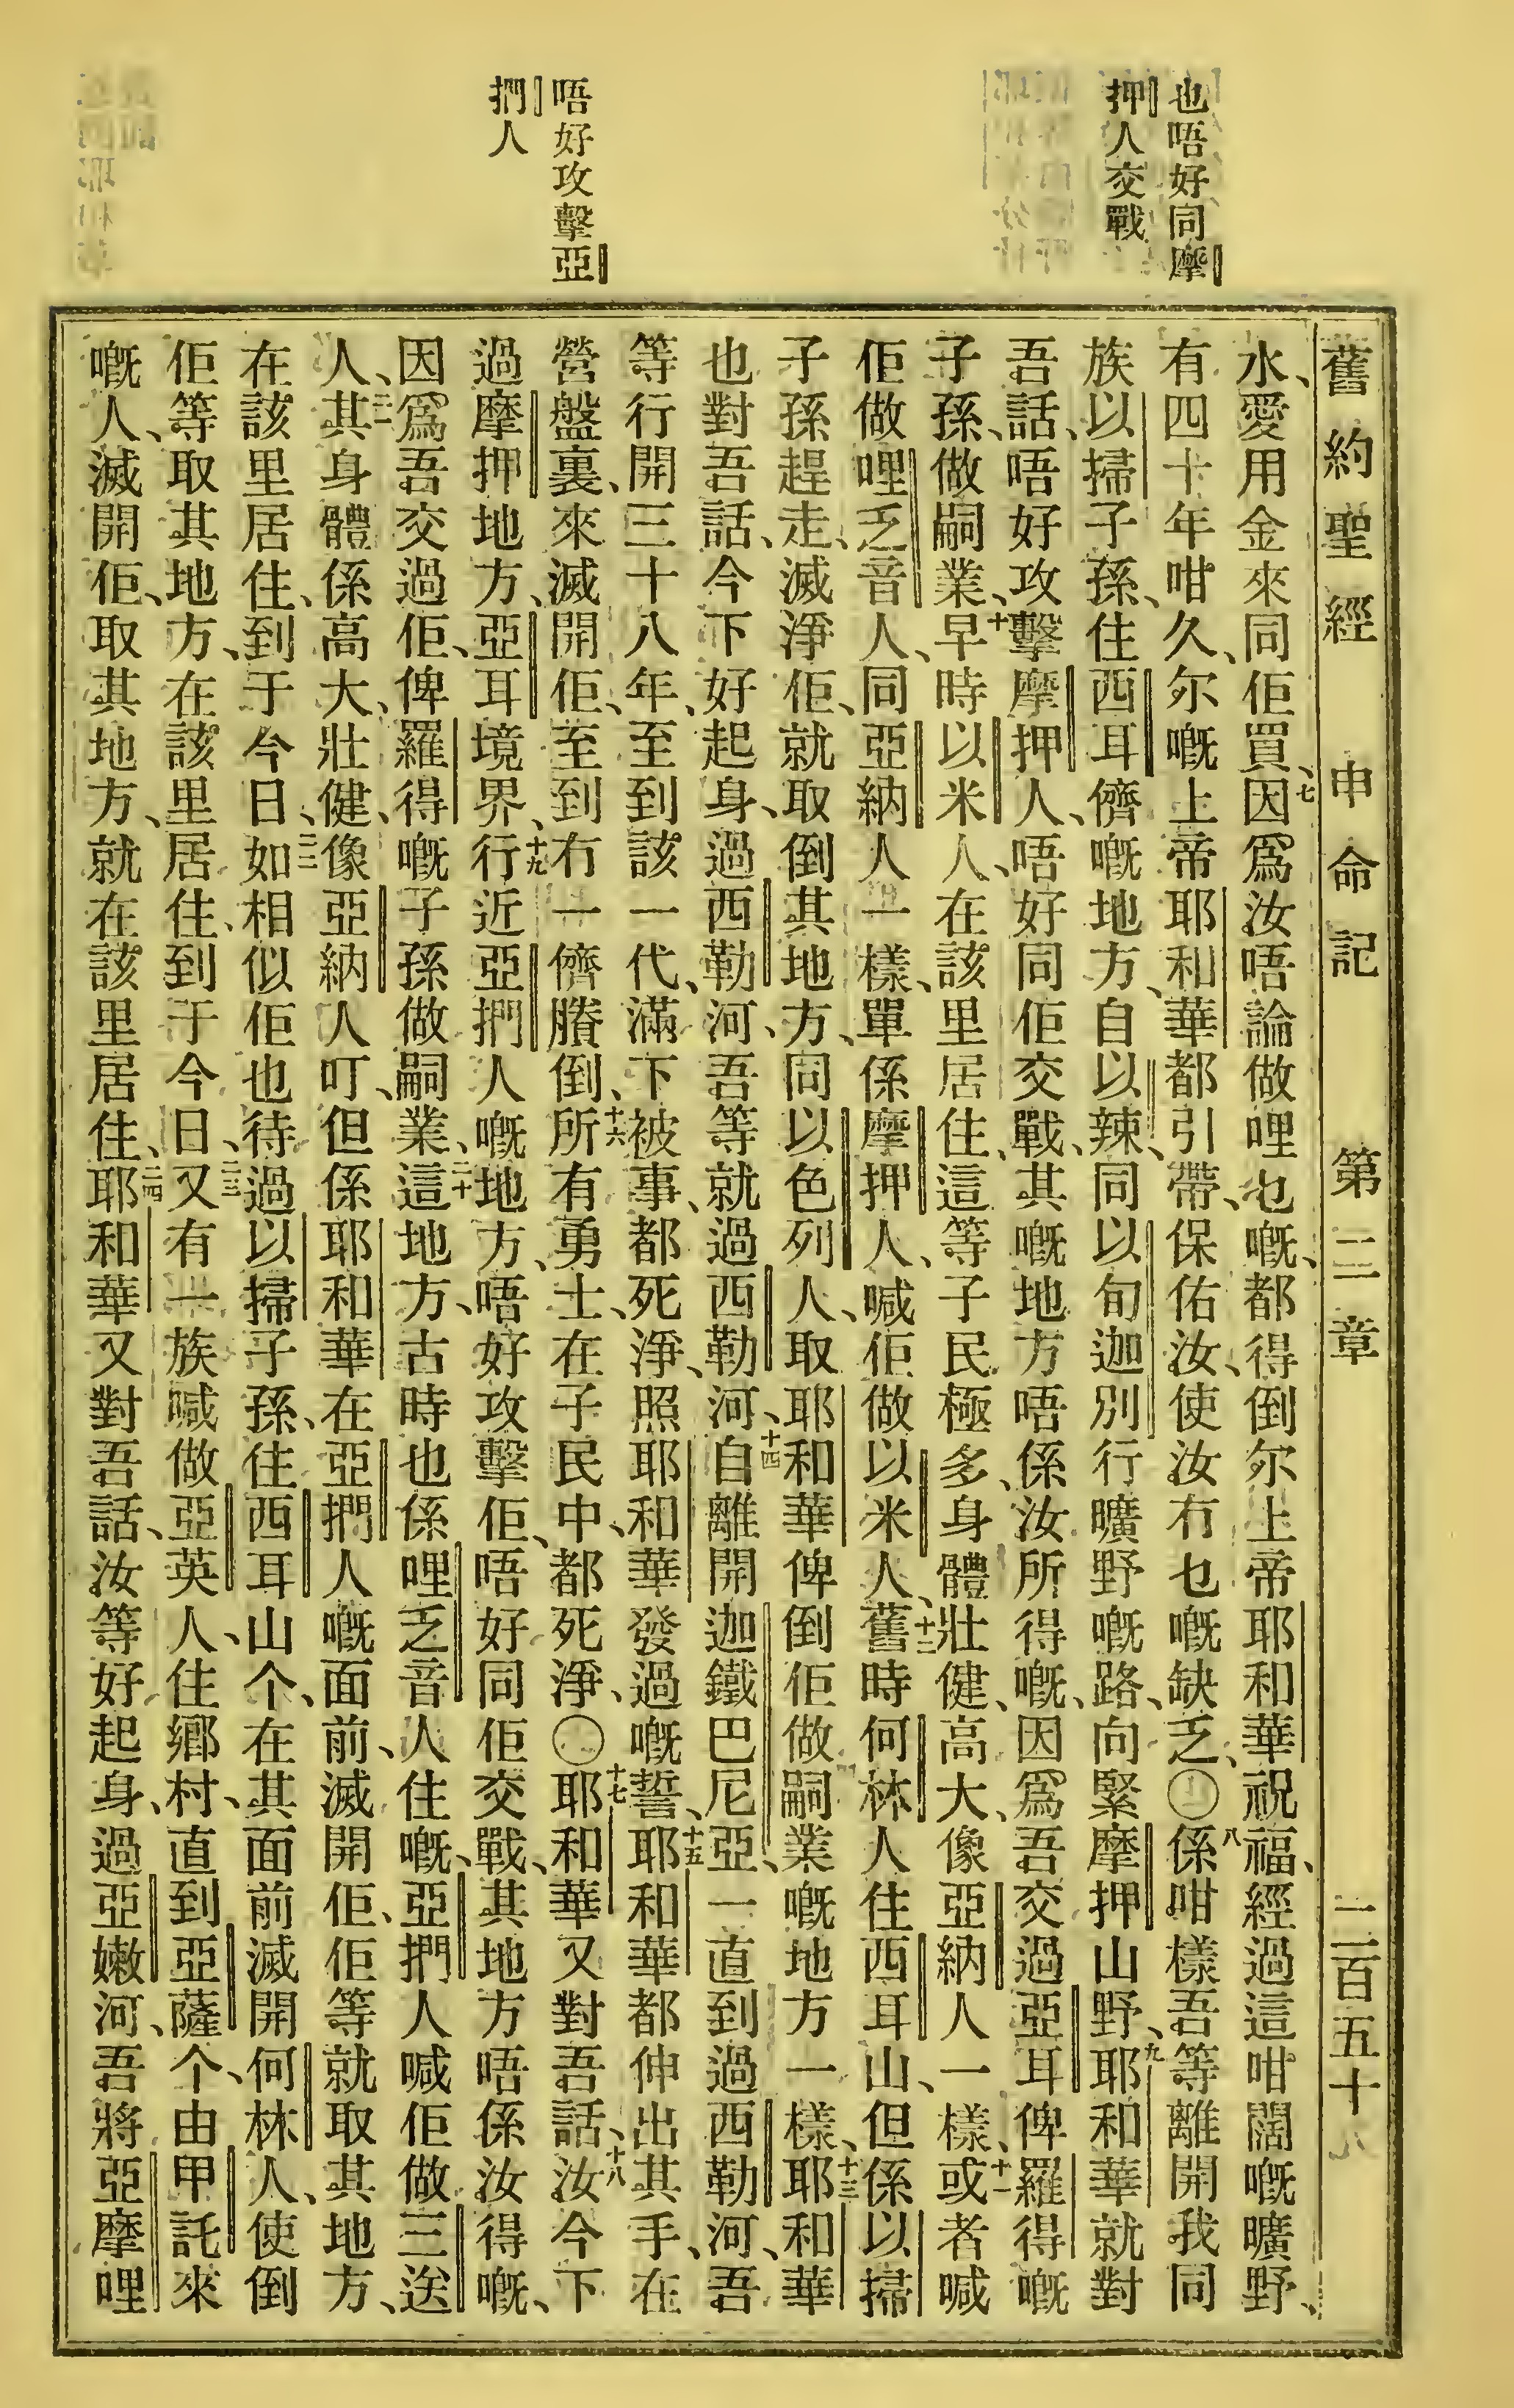 也唔好同摩
押人交戰
唔好攻擊亞
捫人
舊約聖經 申命記 第二章 二百五十八
水、愛用金來同佢買、七因爲汝唔論做哩乜嘅、都得倒尔上帝耶和華祝福、經過這咁闊嘅曠野、
有四十年咁久、尔嘅上帝耶和華都引帶、保佑汝、使汝冇乜嘅缺乏、〇八係咁樣吾等離開我同
族以掃子孫、住西耳儕嘅地方、自以辣、同以旬迦別行曠野嘅路、向緊摩押山野、九耶和華就對
吾話、唔好攻擊摩押人、唔好同佢交戰、其嘅地方唔係汝所得嘅、因爲吾交過亞耳俾羅得嘅
子孫、做嗣業、十早時以米人、在該里居住、這等子民極多、身體壯健、高大、像亞納人一樣、十一或者喊
佢做哩乏音人、同亞納人一樣、單係摩押人、喊佢做以米人、十二舊時何林人住西耳山、但係以掃
子孫趕走、滅淨佢、就取倒其地方、同以色列人、取耶和華俾倒佢做嗣業嘅地方一樣、十三耶和華
也對吾話、今下好起身、過西勒河、吾等就過西勒河、十四自離開迦鐵巴尼亞、一直到過西勒河、吾
等行開三十八年、至到該一代、滿下被事、都死淨、照耶和華發過嘅誓、十五耶和華都伸出其手、在
營盤裏、來滅開佢、至到冇一儕賸倒、十六所有勇士、在子民中、都死淨、〇十七耶和華又對吾話、十八汝今下
過摩押地方、亞耳境界、十九行近亞捫人嘅地方、唔好攻擊佢、唔好同佢交戰、其地方唔係汝得嘅、
因爲吾交過佢、俾羅得嘅子孫做嗣業、二十這地方、古時也係哩乏音人住嘅、亞捫人喊佢做三送
人、二一其身體係高大、壯健、像亞納人叮、但係耶和華在亞捫人嘅面前、滅開佢、佢等就取其地方、
在該里居住、到于今日、二二如相似佢也待過以掃子孫、住西耳山个、在其面前滅開何林人、使倒
佢等取其地方、在該里居住、到于今日、二三又有一族喊做亞英人、住鄉村、直到亞薩个、由甲託來
嘅人、滅開佢、取其地方、就在該里居住、二四耶和華又對吾話、汝等好起身、過亞嫩河、吾將亞摩哩